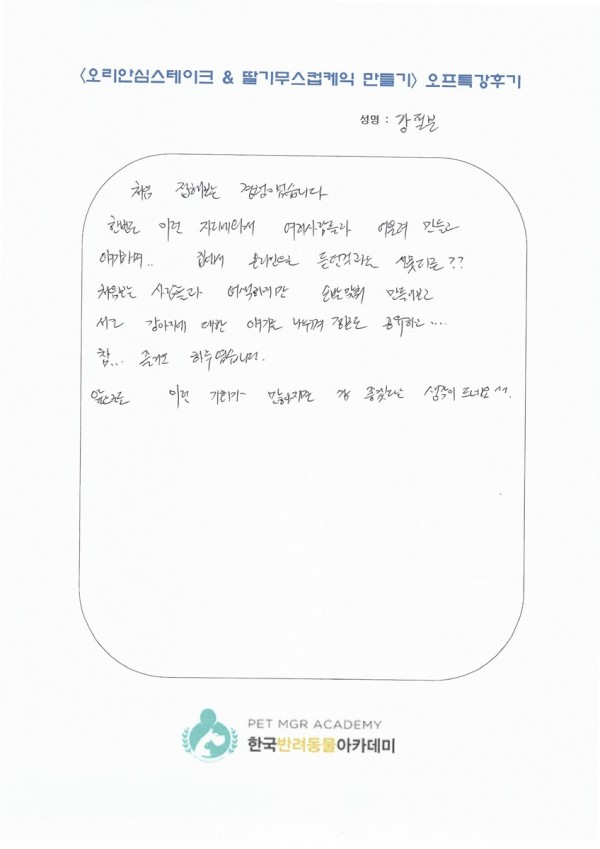 <오리안심스테이크 & 딸기무스컵케익 만들기> 오프특강후기
성명 : 강필분
처음 접해보는 경험이였습니다
한번도 이런 자리에와서 여러사람들과 어울려 만들고
이야기하며.. 집에서 온라인으로 듣던것과는 ??
처음보는 사람들과 어색하지만 손발맞춰 만들어보고
서로 강아지에 대한 얘기도 나누며 정보도 공유하고....
참... 즐거운 하루였습니다.
앞으로도 이런 기회가 많아지면 참 좋겠다는 생각이 드네요^^.
PET MGR ACADEMY
한국반려동물아카데미